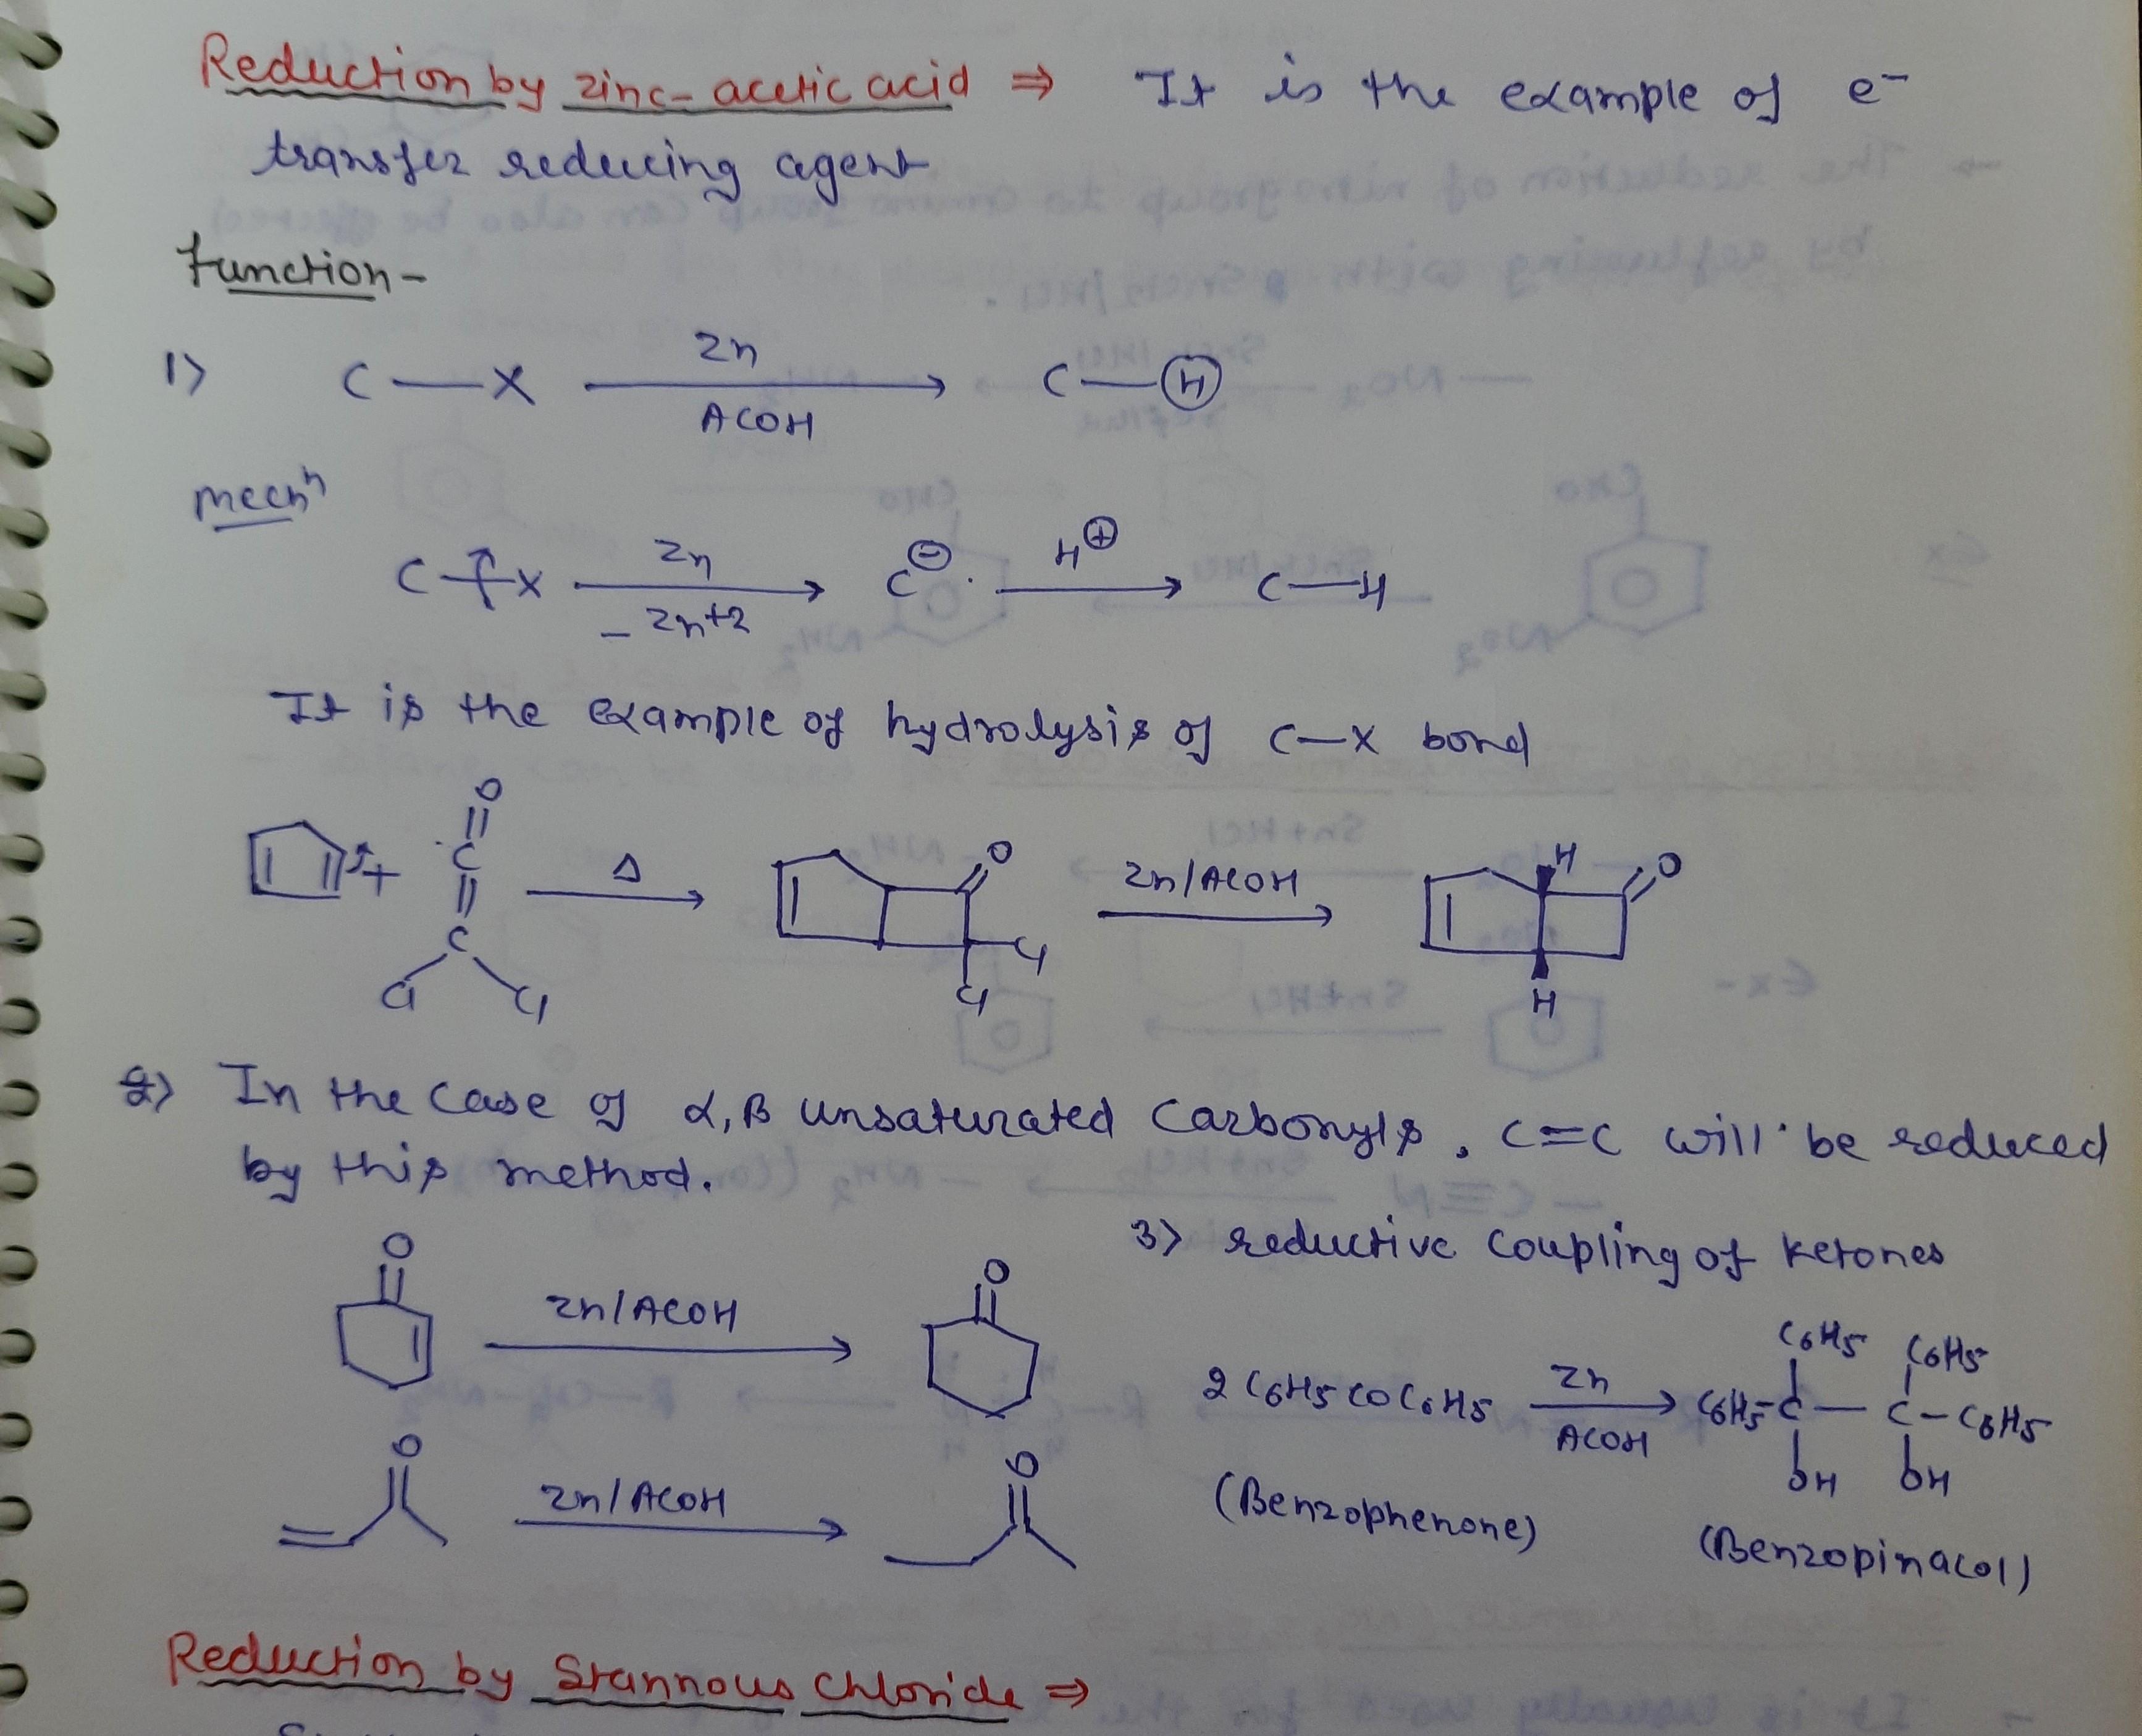 Reduction by zinc-acetic acid ⇒ It is the example of e⁻
transfer reducing agent.
Function-
1> C—X Zn AcOH → C—H
mechⁿ
C—X Zn -Zn+2 → C⊖ H⊕ → C—H
It is the example of hydrolysis of C—X bond
+ O=C=C Cl Cl Δ → O Cl Cl Zn/AcOH → H O H
2> In the case of α,β unsaturated carbonyls, C=C will be reduced
by this method.
O Zn/AcOH → O
O Zn/AcOH → O
3> reductive coupling of ketones
2 C6H5COC6H5 Zn AcOH → C6H5-C—C-C6H5 C6H5 C6H5 OH OH
(Benzophenone) (Benzopinacol)
Reduction by Stannous chloride ⇒